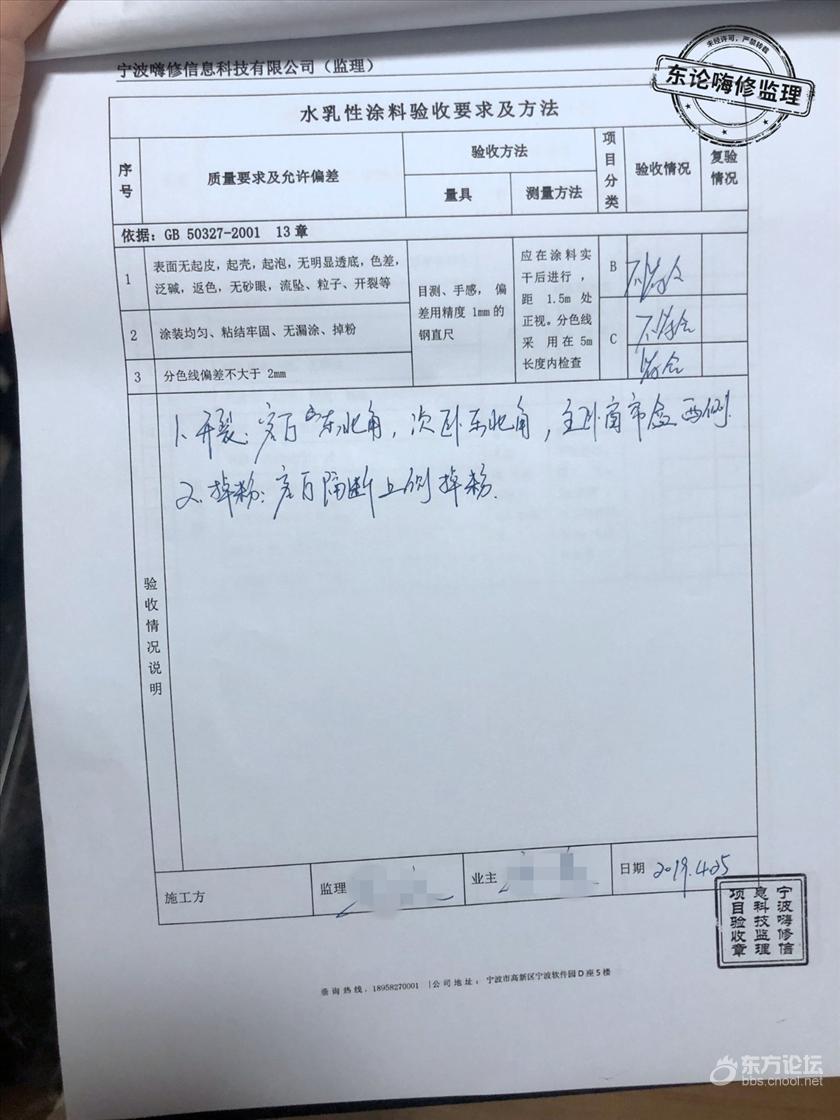 宁波嗨修信息科技有限公司（监理）
未经许可，严禁转载
东论嗨修监理
水乳性涂料验收要求及方法
序号
质量要求及允许偏差
验收方法
量具
测量方法
项目分类
验收情况
复验情况
依据：GB 50327-2001 13 章
1
表面无起皮，起壳，起泡，无明显透底，色差，
泛碱，返色，无砂眼，流坠、粒子、开裂等
2
涂装均匀、粘结牢固、无漏涂、掉粉
3
分色线偏差不大于 2mm
目测、手感，偏
差用精度 1mm 的
钢直尺
应在涂料实
干后进行，
距 1.5m 处
正视。分色线
采 用在 5m
长度内检查
B
不符合
C
不符合
符合
验收情况说明
1、开裂：客厅东北角，次卧东北角，主卧窗帘盒两侧.
2、掉粉：客厅隔断上侧掉粉.
施工方
监理
业主
日期 2019.4.25
宁波嗨修信
息科技监理
项目验收章
垂询热线：18958270001 |公司地址：宁波市高新区宁波软件园D座5楼
东方论坛
bbs.cnool.net